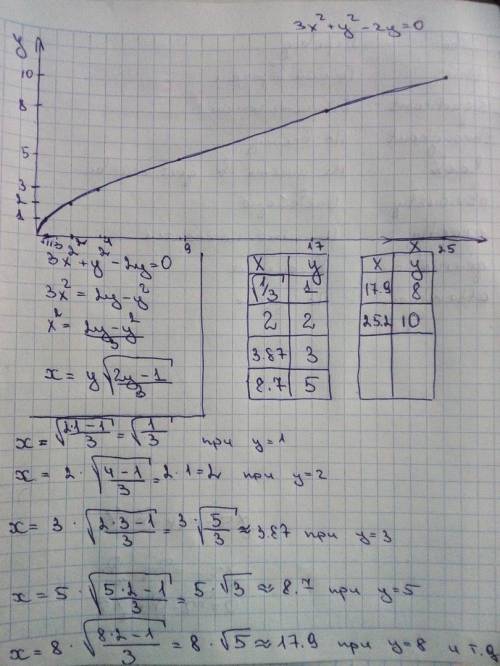 3x²+y²-2y=0
y
10
8
5
3
2
1
9
17
25
x
3x²+y²-2y=0
3x²=2y-y²
x²= (2y-y²)/3
x = y√((2y-1)/3)
x y
√(1/3) 1
2 2
3.87 3
8.7 5
x y
17.9 8
25.2 10
x=√((2·1-1)/3)=√(1/3) при y=1
x = 2·√((4-1)/3)=2·1=2 при y=2
x= 3·√((2·3-1)/3)=3·√(5/3)≈3.87 при y=3
x = 5·√((5·2-1)/3)=5·√3≈8.7 при y=5
x=8·√((8·2-1)/3)=8·√5≈17.9 при y=8 и т.д